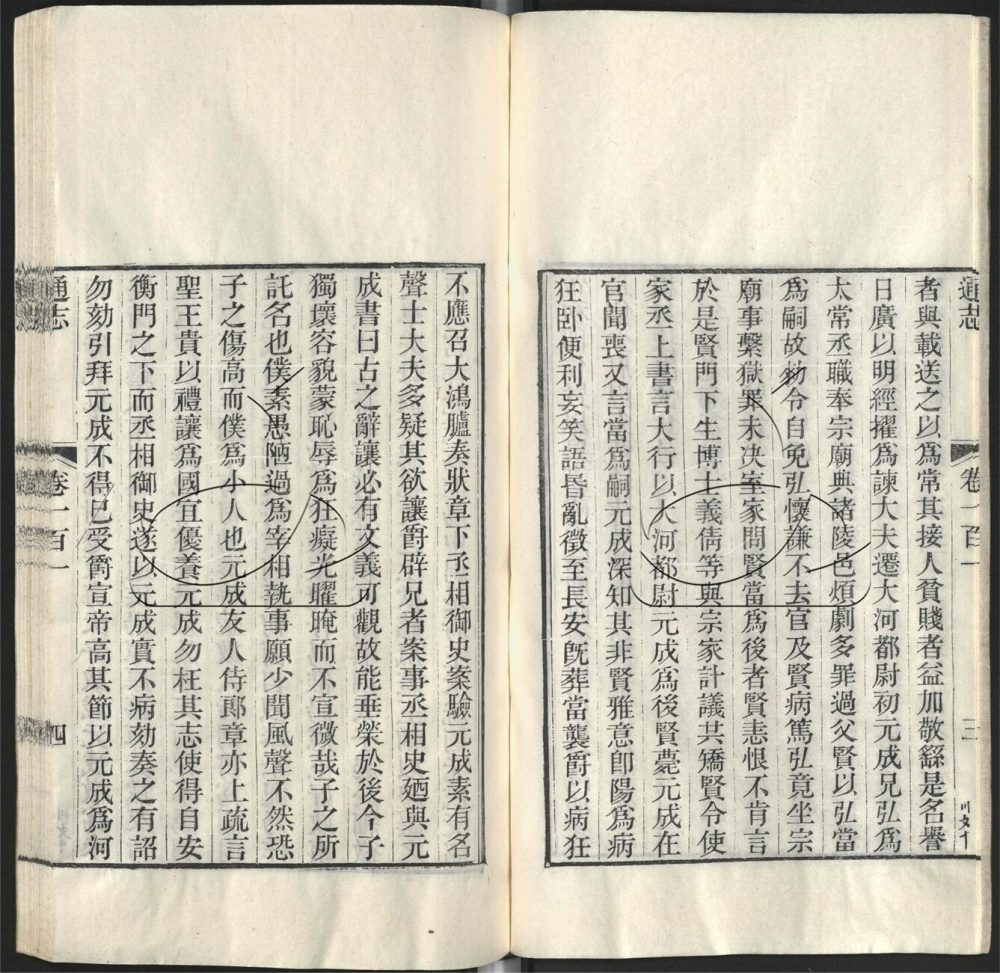 通志
卷一百一
三
者與載送之以爲常其接人貧賤者益加敬繇是名譽
日廣以明經擢爲諫大夫遷大河都尉初元成兄弘爲
太常丞職奉宗廟典諸陵邑煩劇多罪過父賢以弘當
爲嗣故勑令自免弘懷謙不去官及賢病篤弘竟坐宗
廟事繫獄罪未决室家問賢當爲後者賢恚恨不肯言
於是賢門下生博士義倩等與宗家計議共矯賢令使
家丞上書言大行以大河都尉元成爲後賢薨元成在
官聞喪又言當爲嗣元成深知其非賢雅意卽陽爲病
狂卧便利妄笑語昬亂徵至長安旣葬當襲爵以病狂
不應召大鴻臚奏狀章下丞相御史案驗元成素有名
聲士大夫多疑其欲讓爵辟兄者案事丞相史廼與元
成書曰古之辭讓必有文義可觀故能垂榮於後今子
獨壞容貌蒙恥辱爲狂癡光曜晻而不宣微哉子之所
託名也僕素愚陋過爲宰相執事願少聞風聲不然恐
子之傷高而僕爲小人也元成友人侍郞章亦上疏言
聖王貴以禮讓爲國宜優養元成勿枉其志使得自安
衡門之下而丞相御史遂以元成實不病劾奏之有詔
勿劾引拜元成不得已受爵宣帝高其節以元成爲河
通志
卷一百一
四